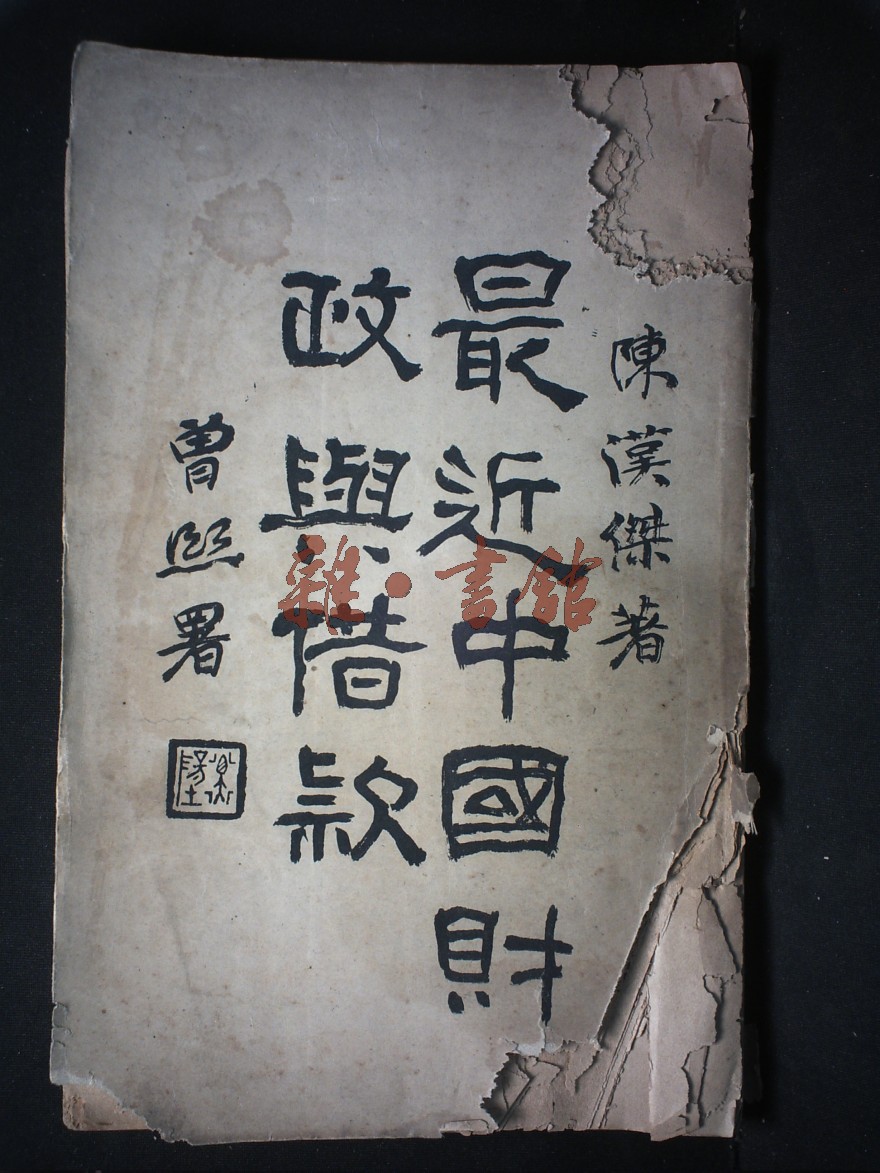 陳漢傑著
最近中國財
政與借款
曾熙署
雜·書館